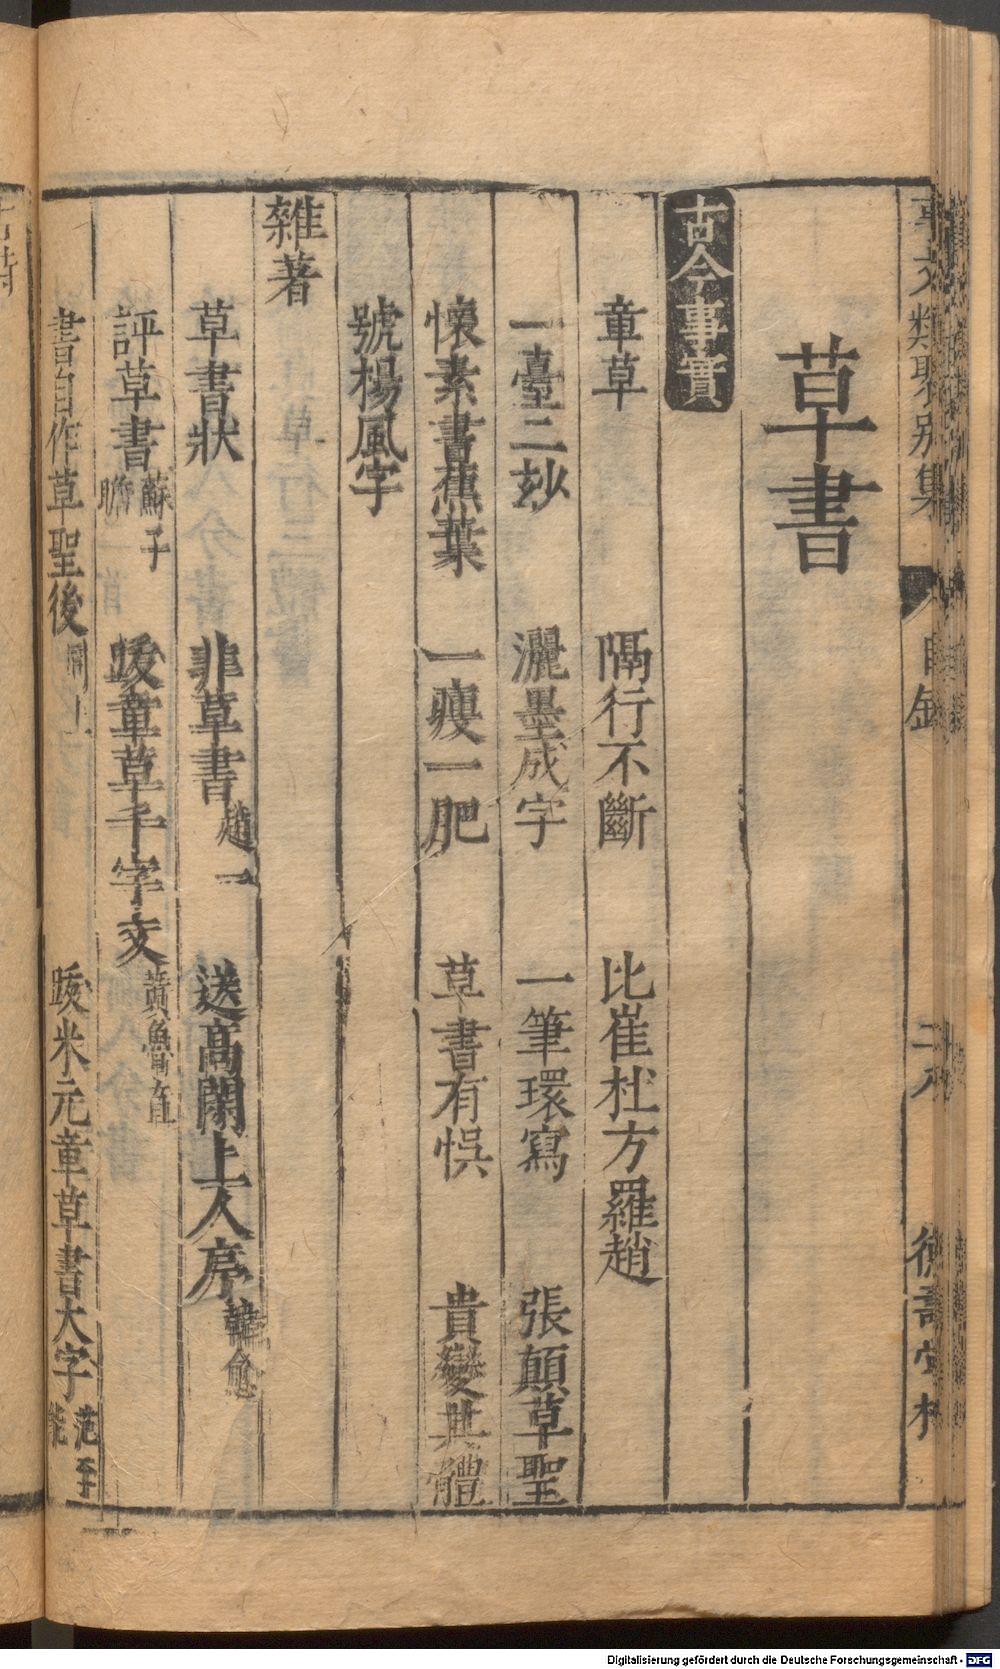 事文類聚别集 目錄 二八 德壽堂梓
草書
古今事實
章草 隔行不斷 比崔杜方羅趙
一臺二妙 灑墨成字 一筆環寫 張顛草聖
懷素書蕉葉 一瘦一肥 草書有悞 貴變其體
號楊風字
雜著
草書狀 非草書 趙一 送高閑上人序 韓愈
評草書 蘇子瞻 跋章草千字文 黃魯直
書自作草聖後 同上 跋米元章草書大字 范至能
Digitalisierung gefördert durch die Deutsche Forschungsgemeinschaft - DFG